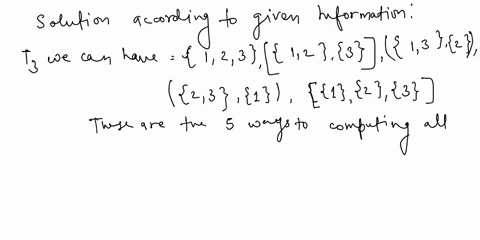 Solution according to given Information:
T3 we can have = { 1, 2, 3}, [{ 1, 2 }, {3}], ({ 1, 3 }, {2}),
({2, 3 }, {1}) , [{1}, {2}, {3}]
These are the 5 ways to computing all